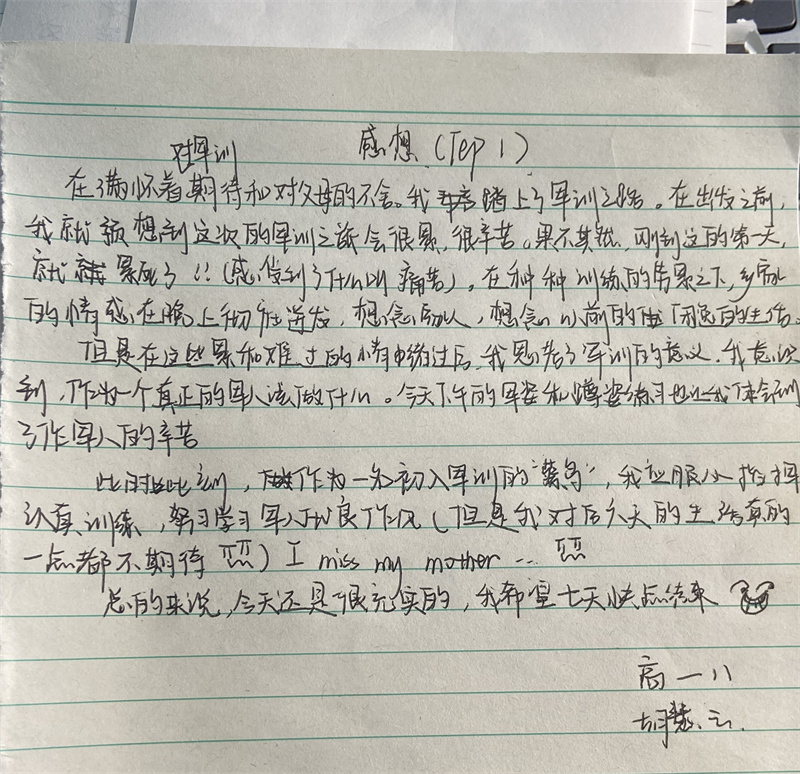 感想 (Tep 1)
对军训
在满怀着期待和对父母的不舍。我踏上了军训之路。在出发之前,
我就预想到这次的军训之旅会很累,很辛苦。果不其然,刚到这的第一天,
就累死了!!(感受到了什么叫痛苦)。在种种训练的劳累之下,乡家
的情感在晚上彻底迸发,想念家人,想念以前的休闲的生活。
但是在这些累和难过的情绪过后,我思考了军训的意义。我意识
到,作为一个真正的军人该做什么。今天下午的军姿和蹲姿练习也让我体会到
了作军人的辛苦
此时此刻,作为一名初入军训的“菜鸟”,我应服从指挥
认真训练,努习学习军人优良作风(但是我对后六天的生活真的
一点都不期待 ) I miss my mother ...
总的来说,今天还是很充实的,我希望七天快点结束
高一八
胡慧云.